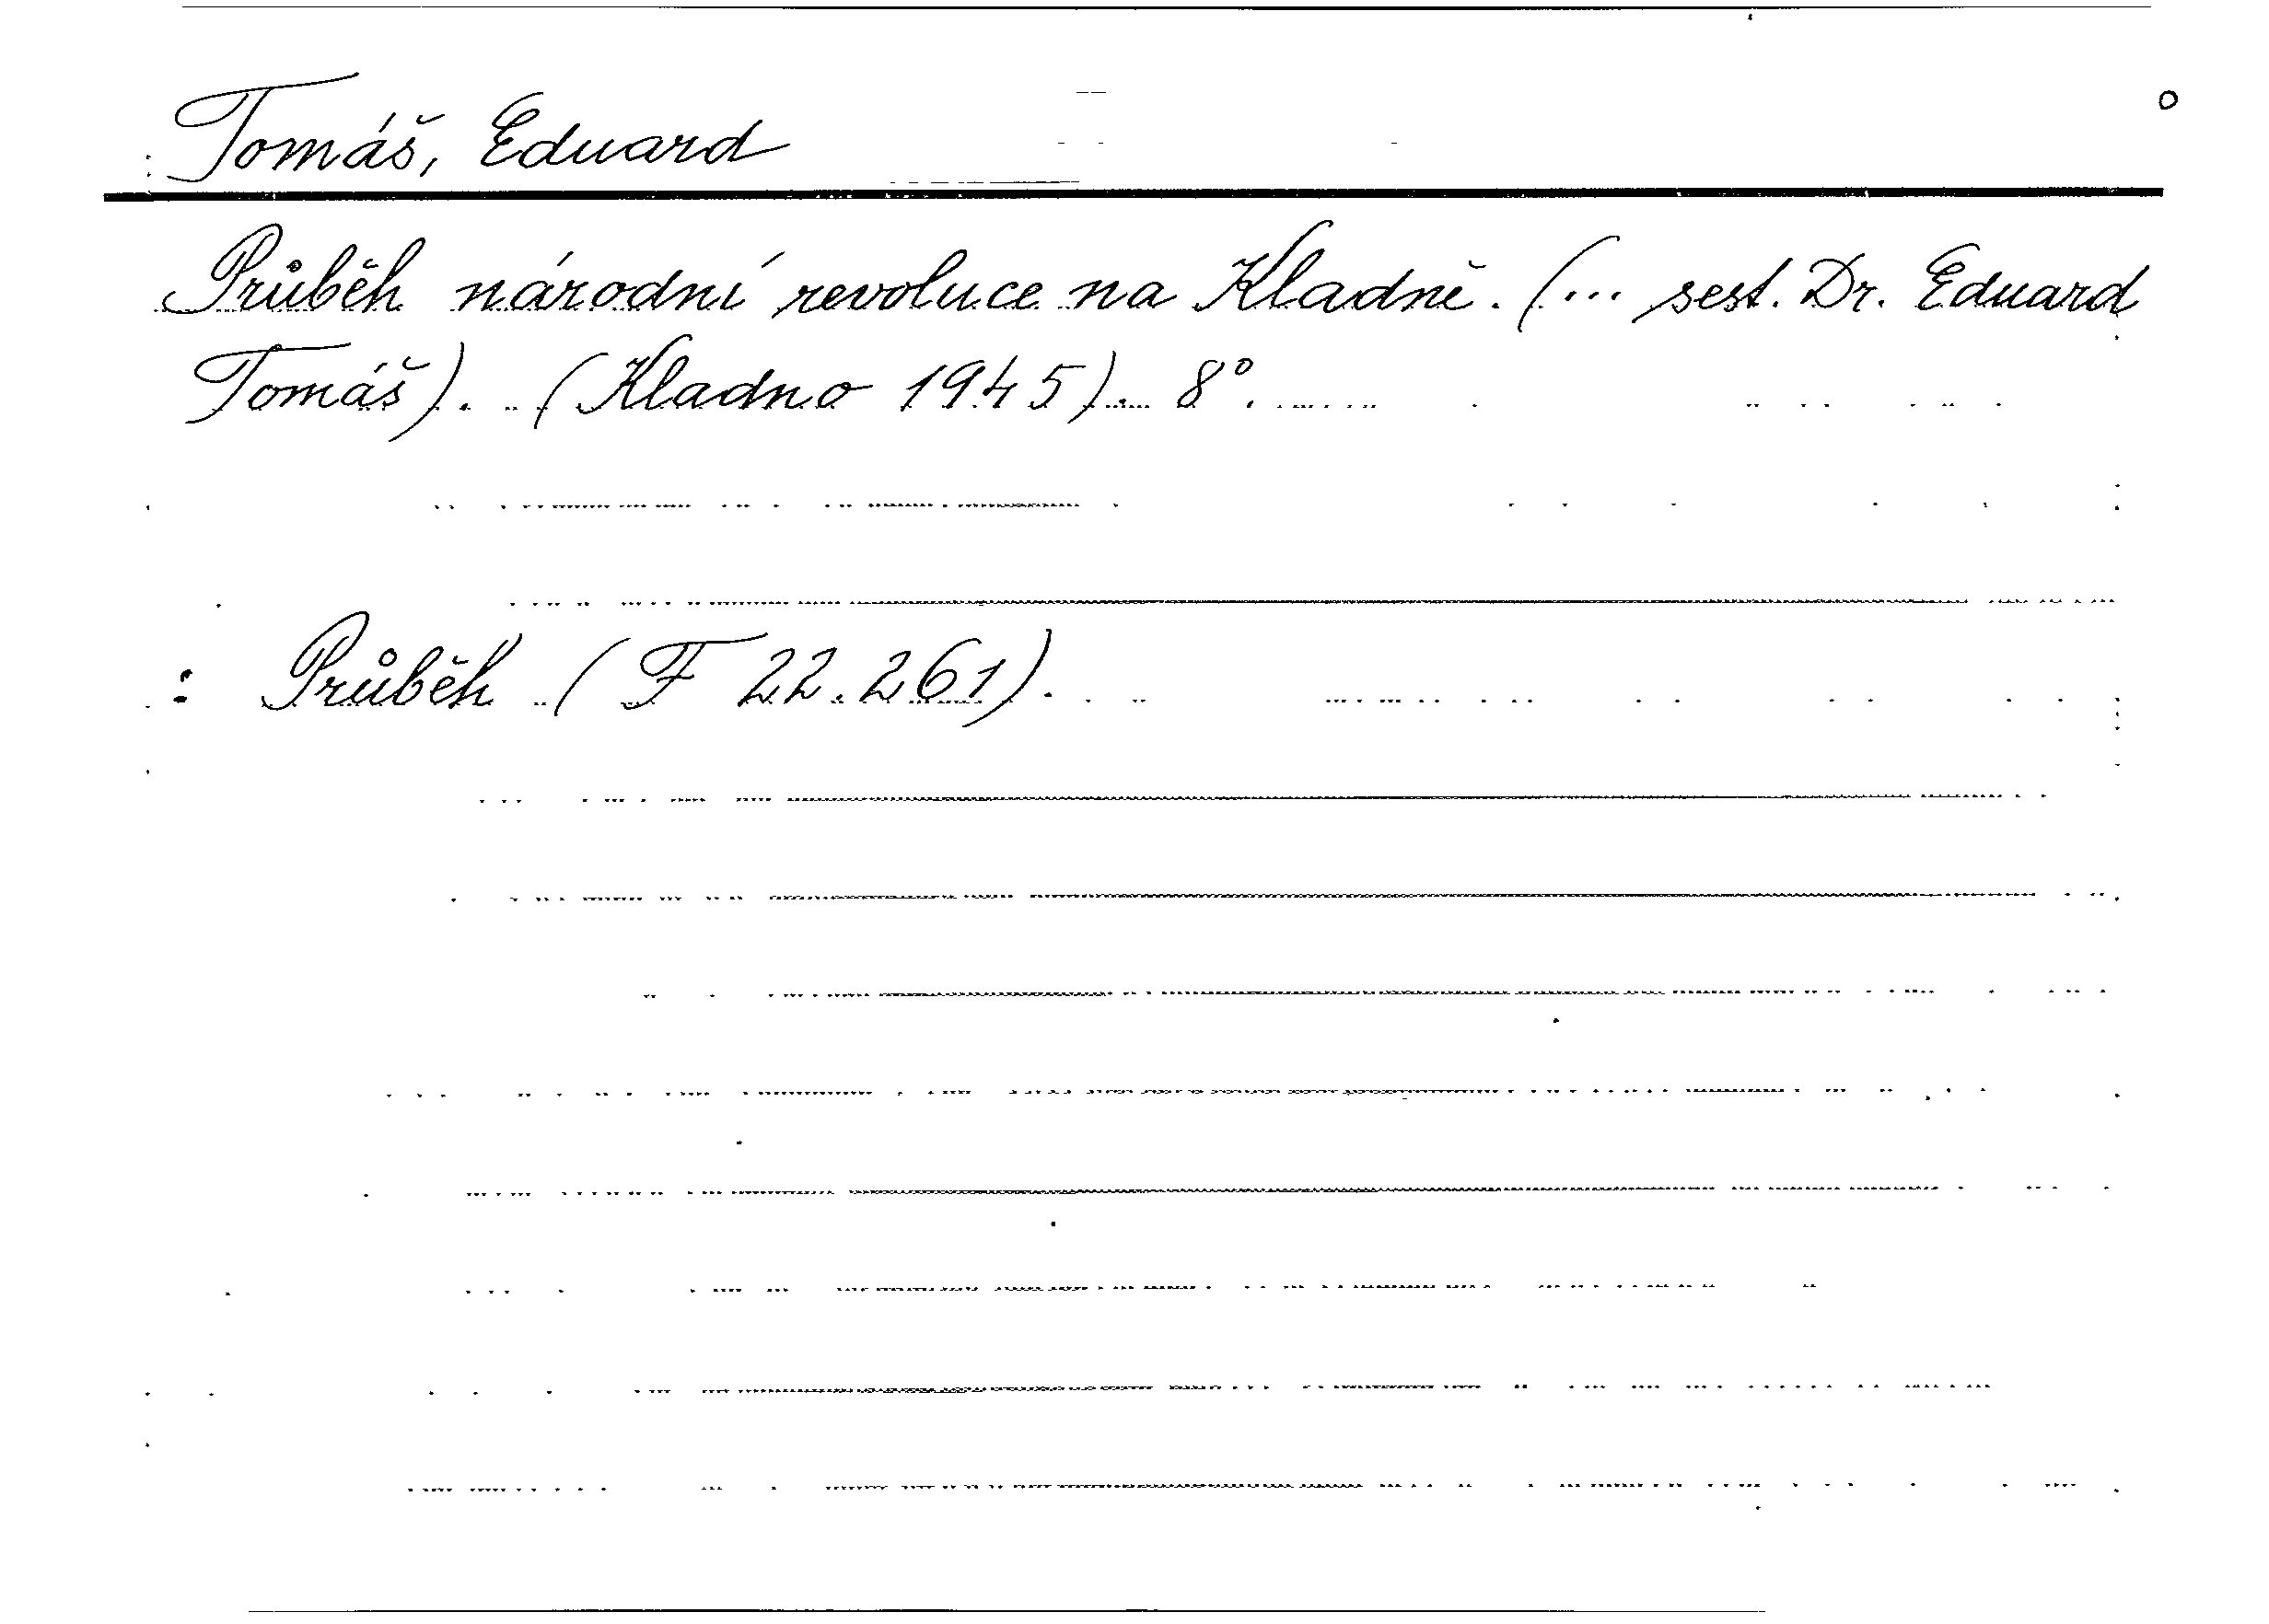 Tomáš, Eduard
Průběh národní revoluce na Kladně. (... sest. Dr. Eduard
Tomáš). (Kladno 1945). 8°.
: Průběh (F 22.261).